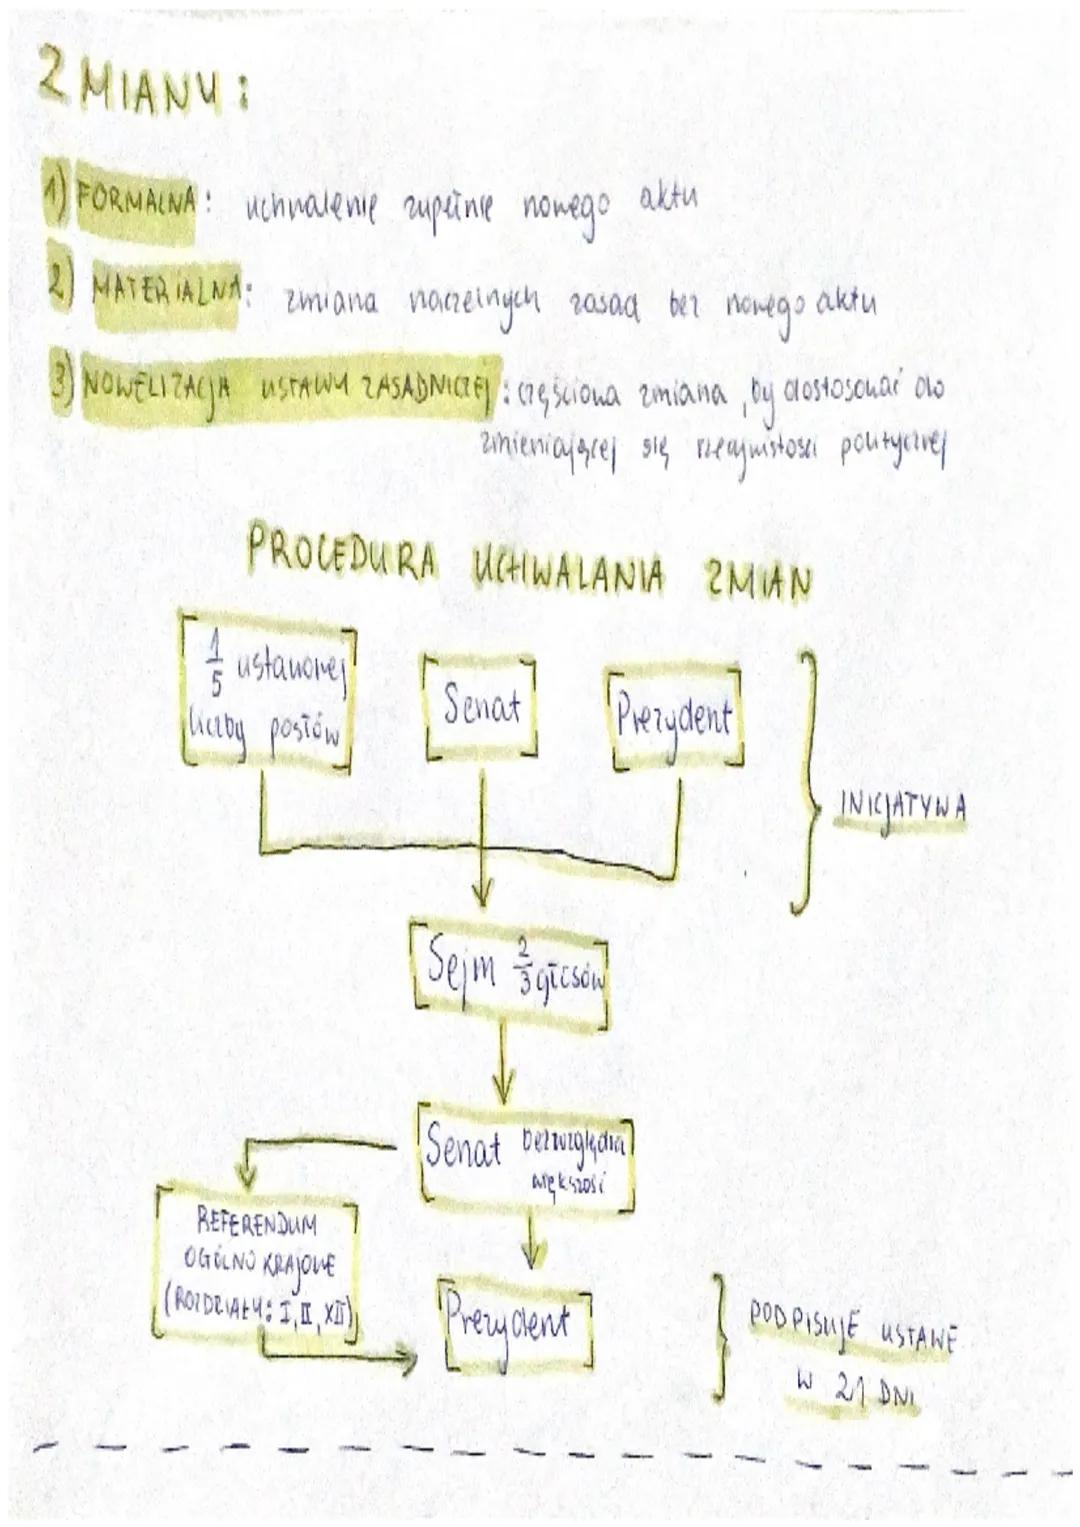 ZMIANY:
1) FORMALNA: uchwalenie zupełnie nowego aktu
2) MATERIALNA: zmiana naczelnych zasad bez nowego aktu
3) NOWELIZACJA USTAWY ZASADNICZEJ: częściowa zmiana, by dostosować do
zmieniającej się rzeczywistości politycznej
PROCEDURA UCHWALANIA ZMIAN
1/5 ustawowej
liczby posłów
Senat
Prezydent
INICJATYWA
Sejm 2/3 głosów
Senat bezwzględna
większość
REFERENDUM
OGÓLNOKRAJOWE
(ROZDZIAŁY: I, II, XII)
Prezydent
PODPISUJE USTAWĘ
W 21 DNI